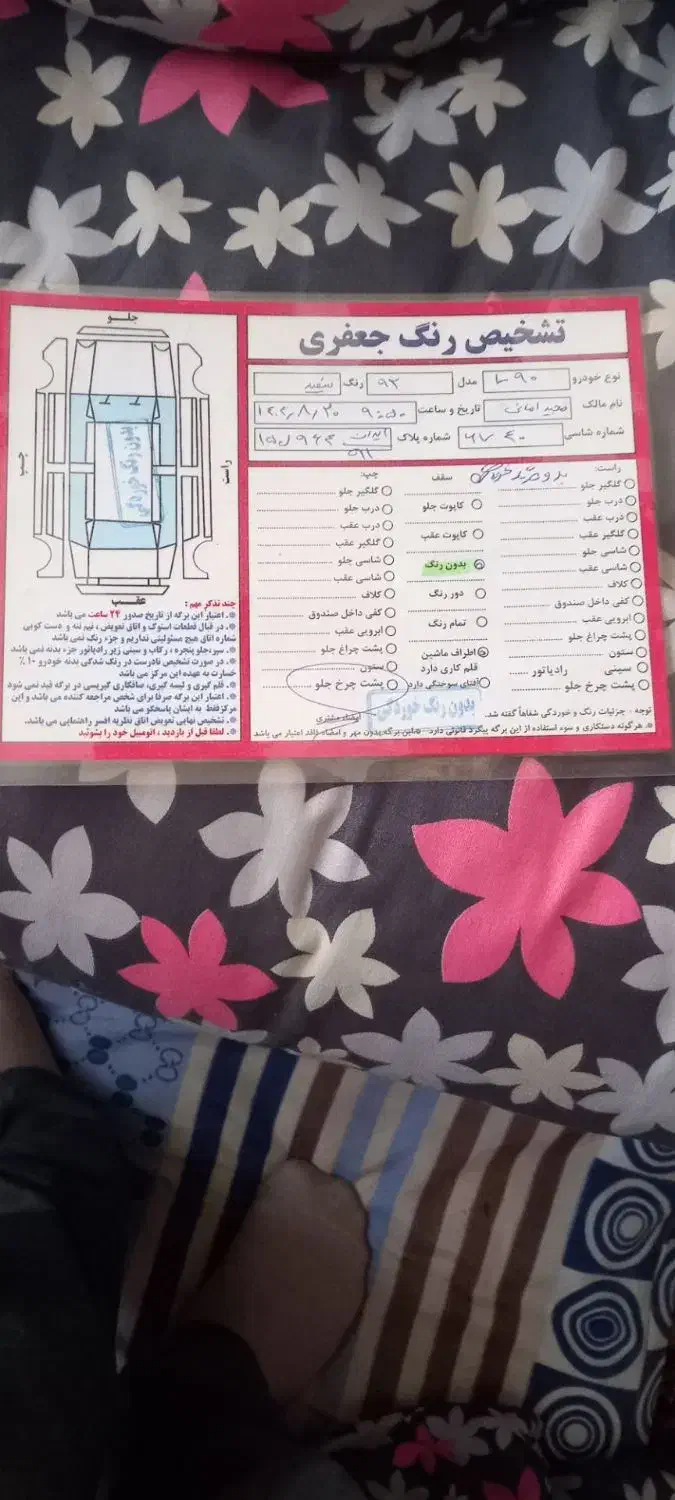 تشخیص رنگ جعفری
نوع خودرو L۹۰ مدل ۹۳ رنگ سفید
نام مالک مجید امانی تاریخ و ساعت ۹:۵۰
شماره شاسی شماره پلاک ایران
راست:
گلگیر جلو
درب جلو
درب عقب
گلگیر عقب
شاسی جلو
شاسی عقب
کلاف
کفی داخل صندوق
ابرویی عقب
پشت چراغ جلو
ستون
سینی رادیاتور
پشت چرخ جلو
سقف
کاپوت جلو
کاپوت عقب
بدون رنگ
دور رنگ
تمام رنگ
اطراف ماشین
قلم کاری دارد
آفتاب سوختگی دارد
چپ:
گلگیر جلو
درب جلو
درب عقب
گلگیر عقب
شاسی جلو
شاسی عقب
کلاف
کفی داخل صندوق
ابرویی عقب
پشت چراغ جلو
ستون
پشت چرخ جلو
بدون رنگ خوردگی
امضاء مشتری
توجه - جزئیات رنگ و خوردگی شفاهاً گفته شد.
* هرگونه دستکاری و سوء استفاده از این برگه پیگرد قانونی دارد این برگه بدون مهر و امضاء فاقد اعتبار می باشد
جلو
راست
چپ
عقب
بدون رنگ خوردگی
چند تذکر مهم :
*. اعتبار این برگه از تاریخ صدور ۲۴ ساعت می باشد
*. در قبال قطعات استوک و اتاق تعویض ، نیم تنه و دست کوبی
شماره اتاق هیچ مسئولیتی نداریم و جزء رنگ نمی باشد
*. سپرجلو پنجره ، رکاب و سینی زیر رادیاتور جزء بدنه نمی باشد
*. در صورت تشخیص نادرست در رنگ شدگی بدنه خودرو ۱۰ ٪
خسارت به عهده این مرکز می باشد
*. قلم گیری و لیسه گیری، صافکاری گیریسی در برگه قید نمی شود
*. اعتبار این برگه صرفا برای شخص مراجعه کننده می باشد و این
مرکز فقط به ایشان پاسخگو می باشد
*. تشخیص نهایی تعویض اتاق نظریه افسر راهنمایی می باشد.
*. لطفا قبل از بازدید ، اتومبیل خود را بشوئید